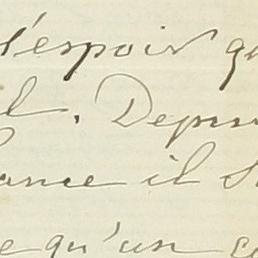 l'espoir q
l. Depu
ance il s
e qu'un c